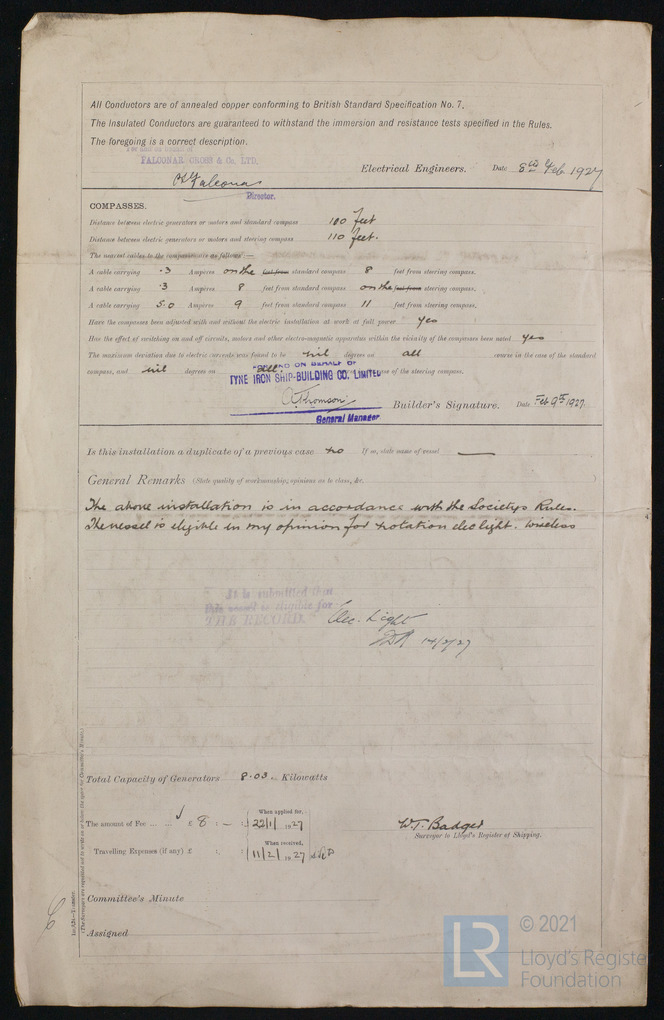 All Conductors are of annealed copper conforming to British Standard Specification No. 7.
The Insulated Conductors are guaranteed to withstand the immersion and resistance tests specified in the Rules.
The foregoing is a correct description.
FALCONAR CROSS & Co. LTD.
Falconar Electrical Engineers. Date 8th Feb 1927
Director.
COMPASSES.
Distance between electric generators or motors and standard compass 100 feet
Distance between electric generators or motors and steering compass 110 feet.
The nearest cables to the compasses are as follows:—
A cable carrying .3 Amperes on the feet from standard compass 8 feet from steering compass.
A cable carrying .3 Amperes 8 feet from standard compass on the feet from steering compass.
A cable carrying 5.0 Amperes 9 feet from standard compass 11 feet from steering compass.
Have the compasses been adjusted with and without the electric installation at work at full power yes
Has the effect of switching on and off circuits, motors and other electro-magnetic apparatus within the vicinity of the compasses been noted yes
The maximum deviation due to electric currents was found to be nil degrees on all course in the case of the standard
compass, and nil degrees on all course in the case of the steering compass.
FOR AND ON BEHALF OF
TYNE IRON SHIP-BUILDING CO. LIMITED
Thomson Builder's Signature. Date Feb 9th 1927.
General Manager
Is this installation a duplicate of a previous case no If so, state name of vessel —
General Remarks (State quality of workmanship; opinions as to class, &c. )
The above installation is in accordance with the Societys Rules.
The vessel is eligible in my opinion for notation elec light. Wireless
It is submitted that
this vessel is eligible for
THE RECORD. Elec. Light
14/2/27
Total Capacity of Generators 8.03 Kilowatts
The amount of Fee ... ... £ 8 : — : When applied for, 22/1/1927
Travelling Expenses (if any) £ : : When received, 11/2/1927
W.T. Badger
Surveyor to Lloyd's Register of Shipping.
Committee's Minute
Assigned
LR © 2021
Lloyd's Register
Foundation